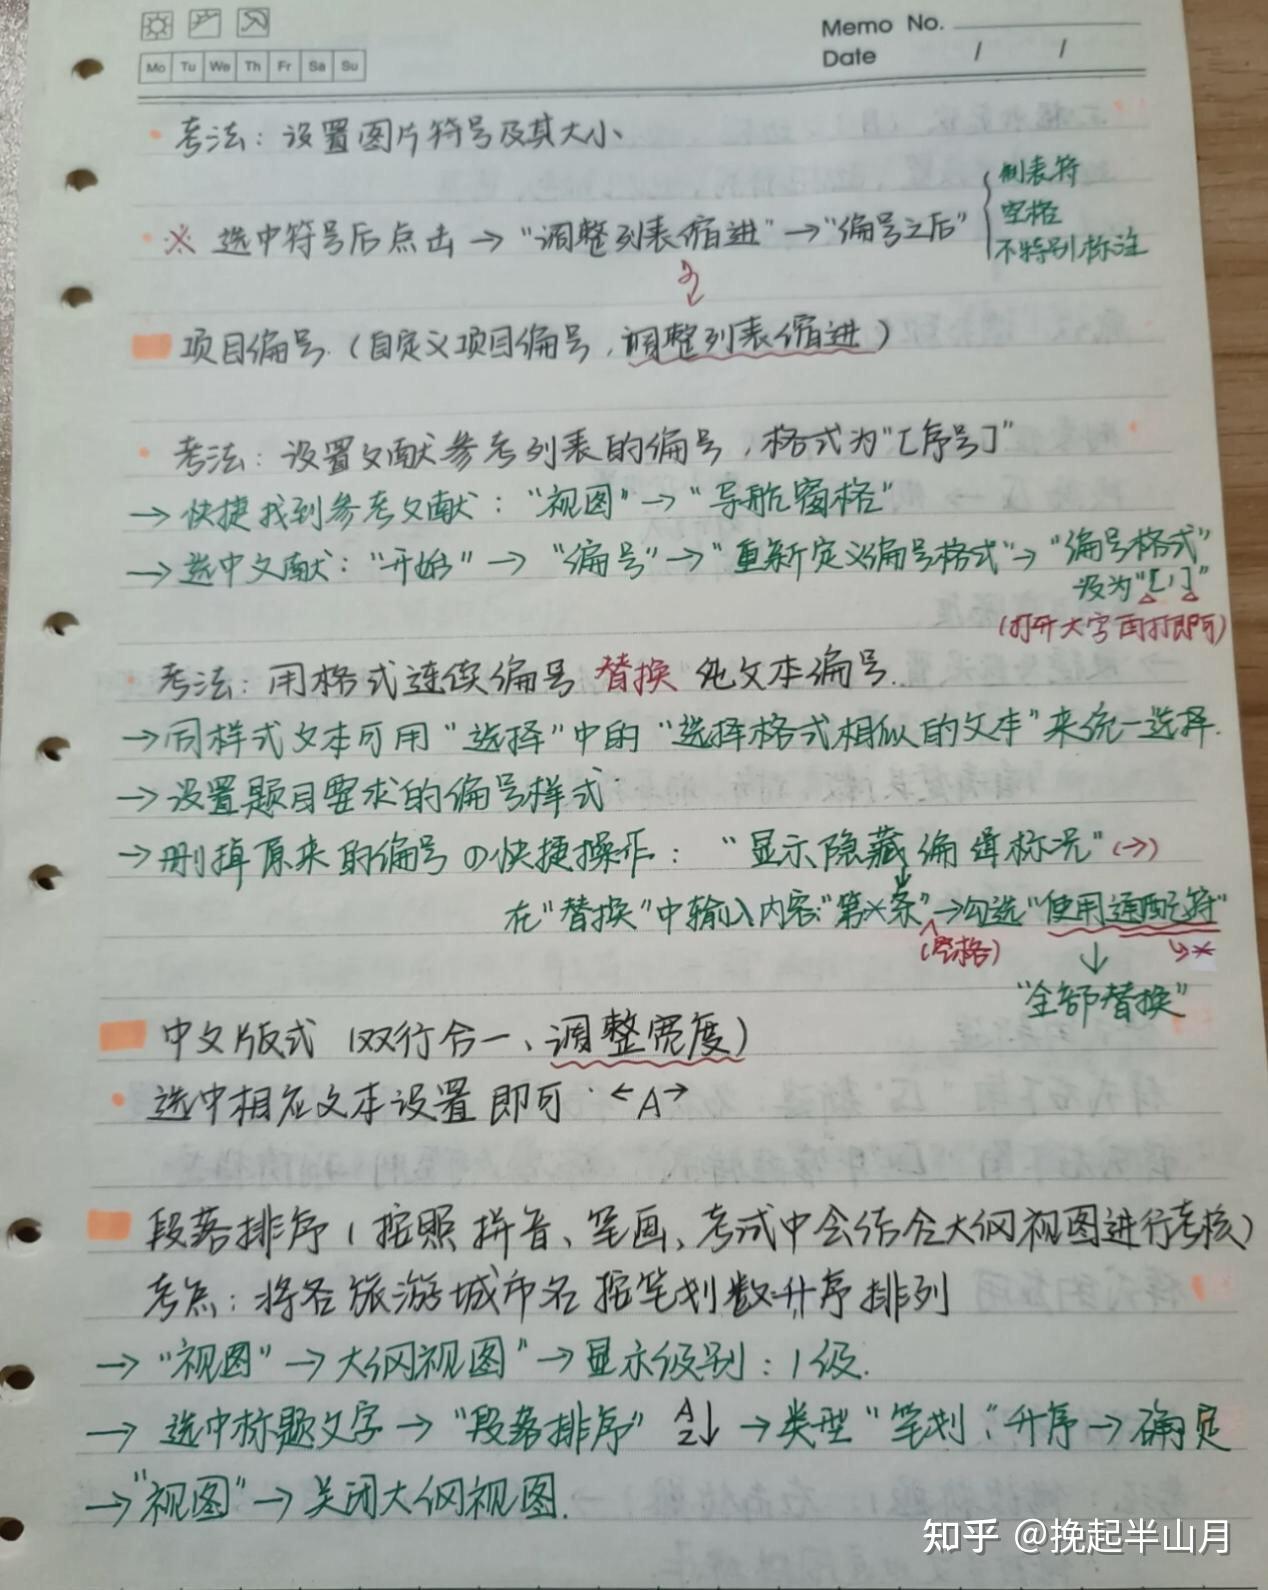 Memo No.
Date / /
Mo Tu We Th Fr Sa Su
考法：设置图片符号及其大小
※ 选中符号后点击→"调整列表缩进"→"编号之后"
制表符
空格
不特别标注
项目编号（自定义项目编号，调整列表缩进）
考法：设置文献参考列表的编号，格式为"[序号]"
→快捷找到参考文献："视图"→"导航窗格"
→选中文献："开始"→"编号"→"重新定义编号格式"→"编号格式"
设为"[1]"
(打开大字面打即可)
考法：用格式连续编号替换纯文本编号.
→同样式文本可用"选择"中的"选择格式相似的文本"来统一选择.
→设置题目要求的编号样式
→删掉原来的编号の快捷操作："显示隐藏编辑标况"(→)
在"替换"中输入内容:"第*条"→勾选"使用通配符"
(空格)
↳*
↓
"全部替换"
中文版式（双行合一、调整宽度）
选中相应文本设置即可 ←A→
段落排序（按照拼音、笔画、考试中会结合大纲视图进行考核）
考点：将各旅游城市名按笔划数升序排列
→"视图"→大纲视图"→显示级别：1级.
→选中标题文字→"段落排序" AZ↓→类型"笔划"升序→确定
→"视图"→关闭大纲视图.
知乎 @挽起半山月